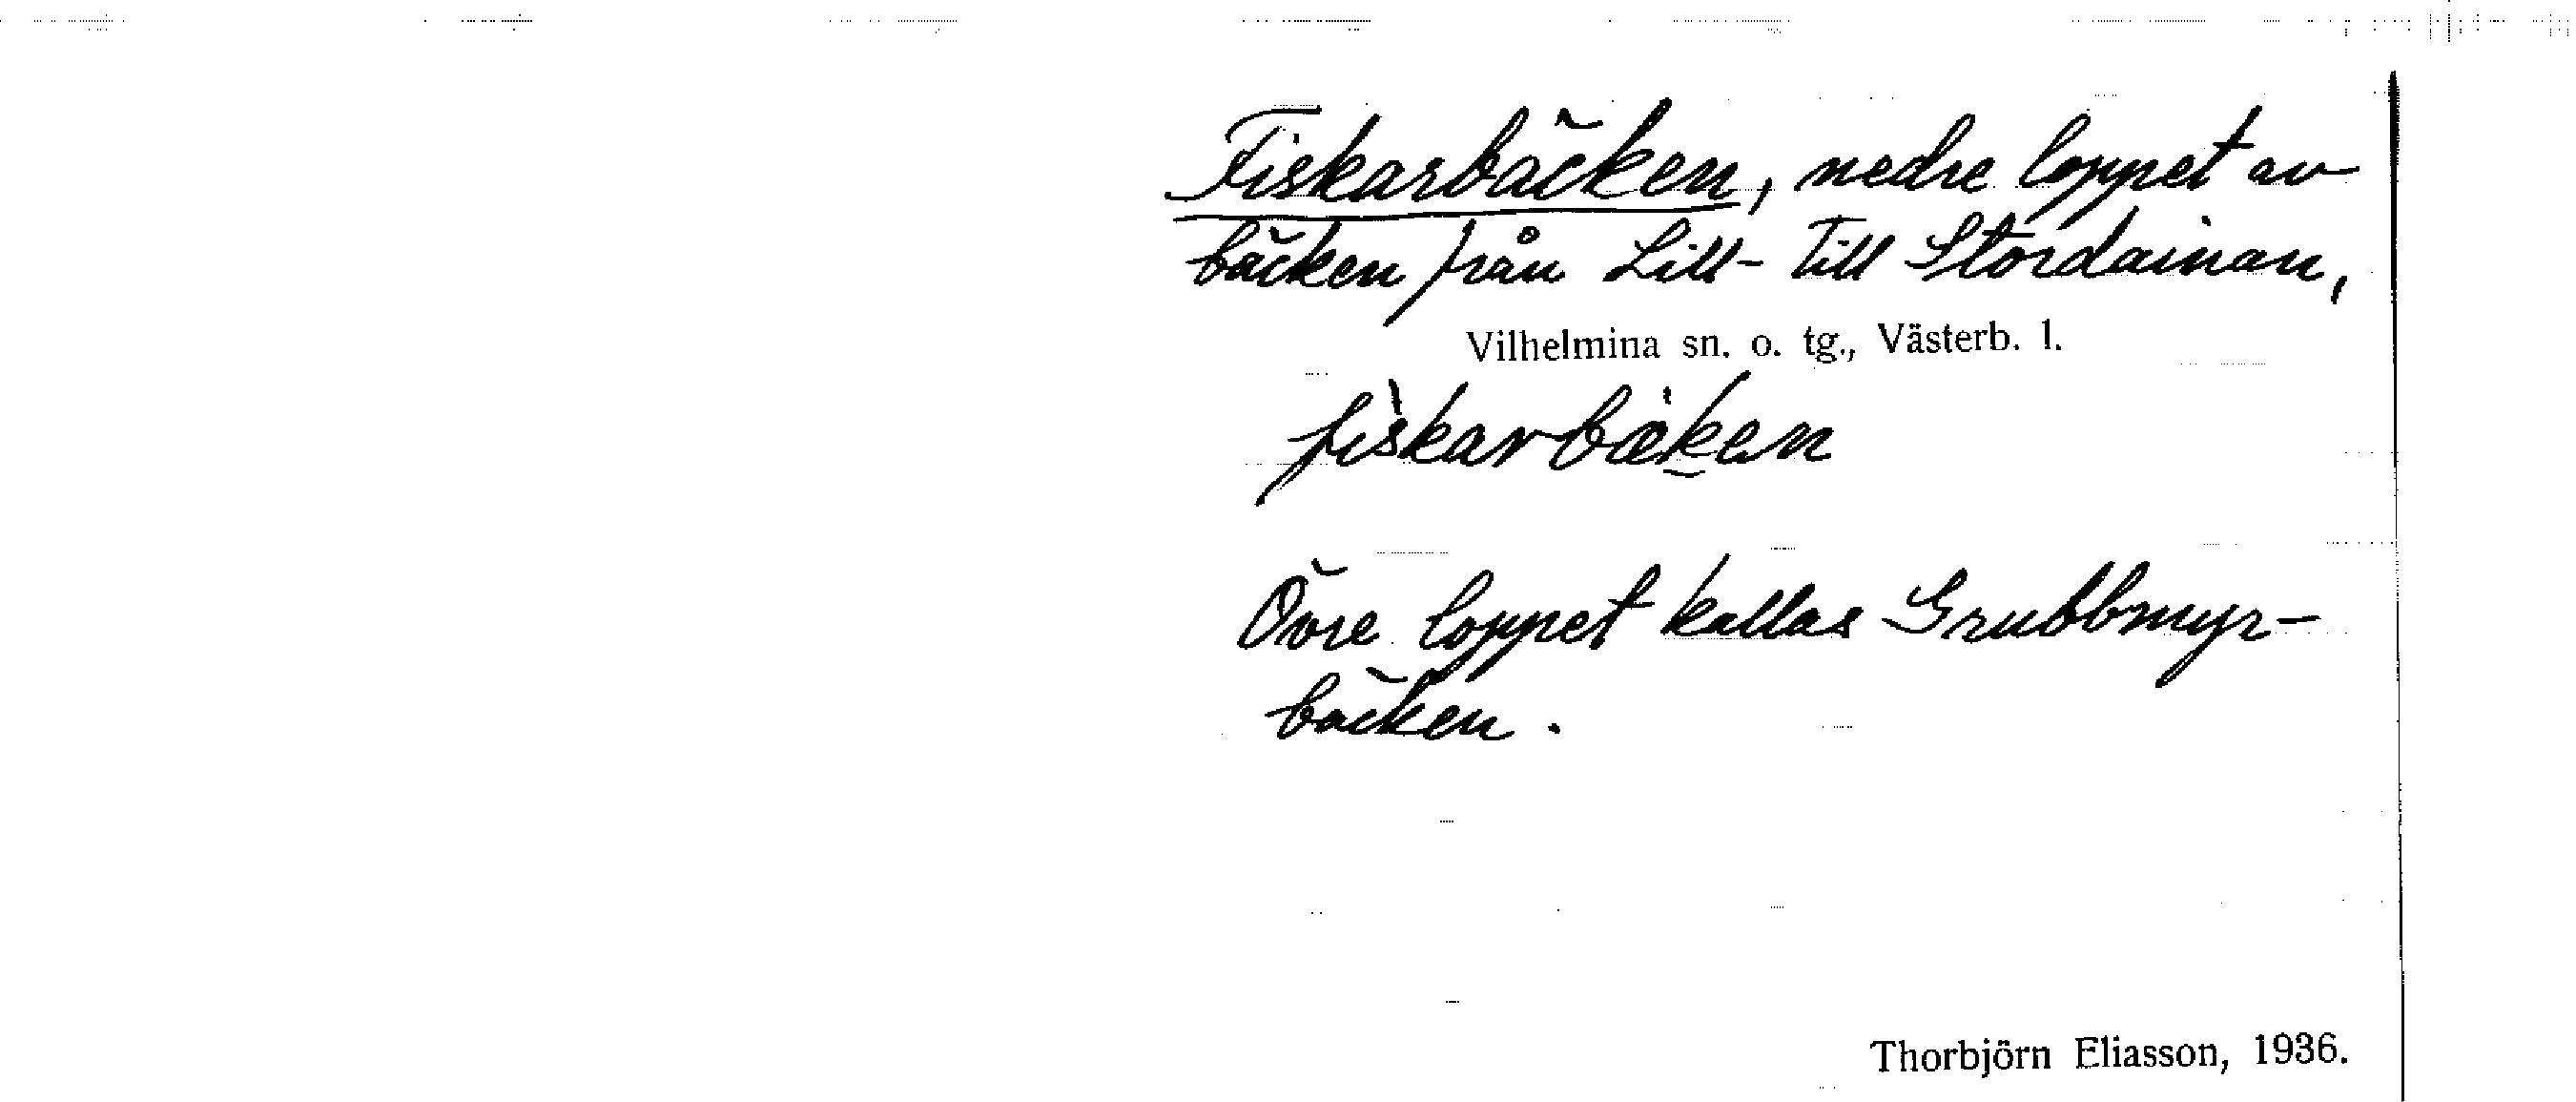 Fiskarbäcken, nedre loppet av
bäcken från Lill- till Stordainan,
Vilhelmina sn. o. tg., Västerb. l.
fìskarbæ̀ken
Övre loppet kallas Grubbmyr-
bäcken.
Thorbjörn Eliasson, 1936.